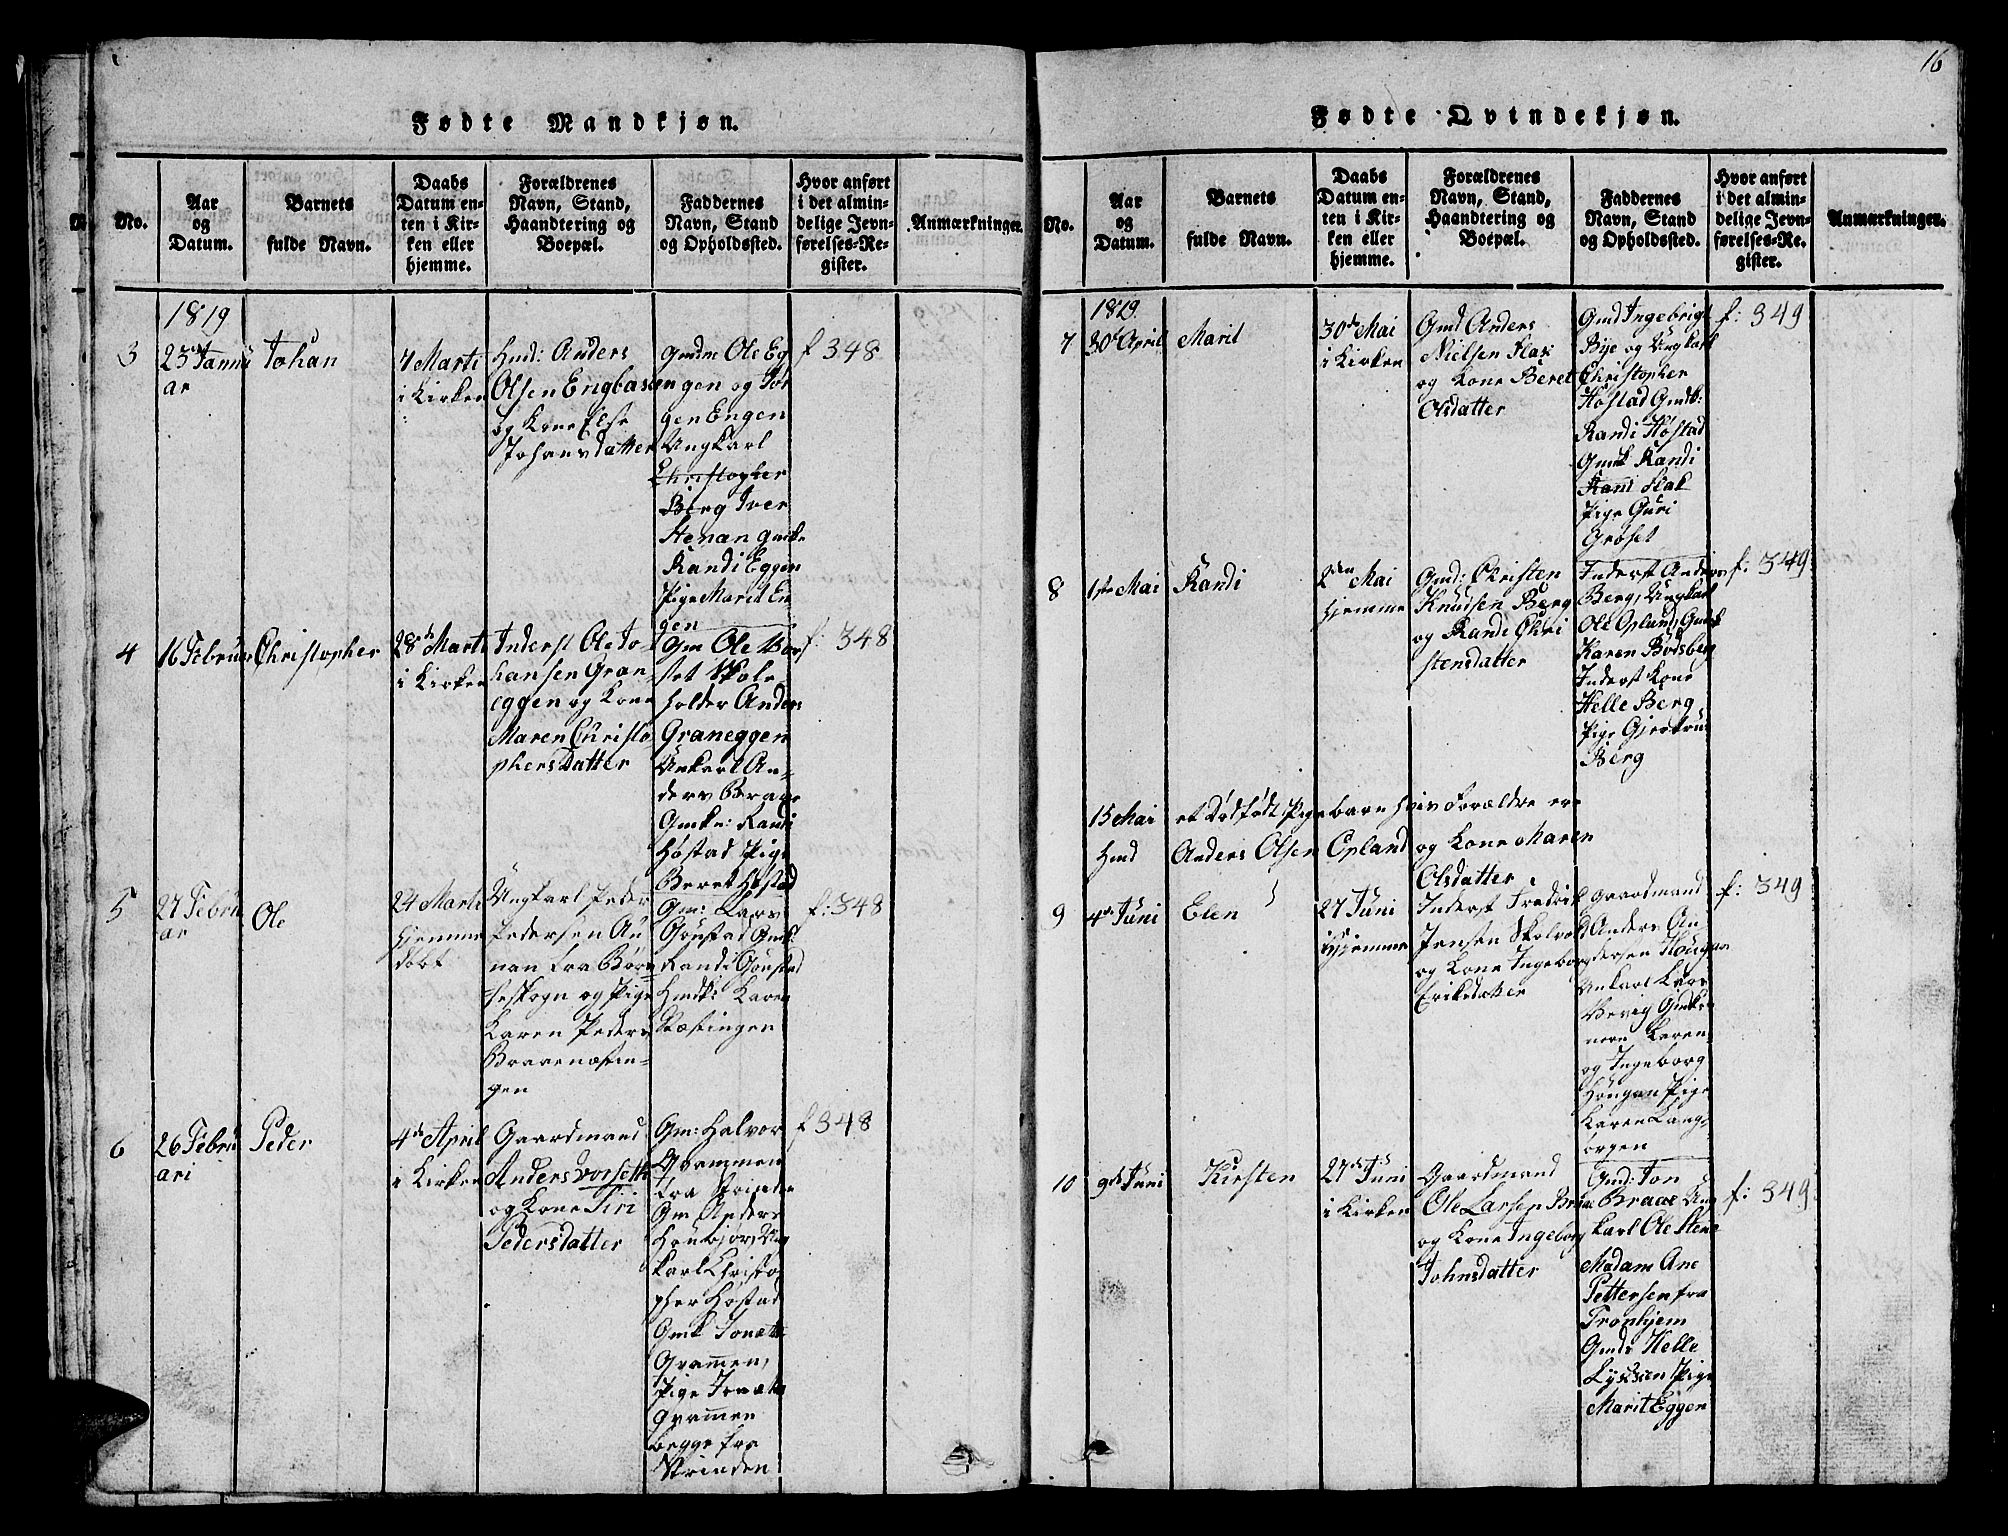 16
Fødte Mandkjøn.
No.
Aar
og
Datum.
Barnets
fulde Navn.
Daabs
Datum en-
ten i Kir-
ken eller
hjemme.
Forældrenes
Navn, Stand,
Haandtering og
Boepæl.
Faddernes
Navn, Stand
og Opholdssted.
Hvor anført
i det almin-
delige Jevn-
førelses-Re-
gister.
Anmærkninger.
1819
3
23 Janu
ar
Johan
7 Marti
i Kirken
Hmd: Anders
Olsen Engbasen
og Kone Else
Johansdatter
Gmdm Ole Eg
gen og Jor
gen Engen
Ungkarl
Christopher
Berg Iver
Stenan Gmke
Randi Eggen
Pige Marit En-
gen
f 348
4
16 Februar
Christopher
28de Marti
i Kirken
Inderst Ole Jo-
hansen Gran-
eggen og Kone
Maren Christo
phersdatter
Gm Ole Bor
set Skole
holder Anders
Graneggen
Unkarl An-
ders Braae
Gmke: Randi
Høstad Pige
Beret Høstad
f: 348
5
27 Febru
ar
Ole
24 Marti
hjemme
døbt
Ungkarl Peder
Pedersen Au
nan fra Børs
heskogn og Pige
Karen Peders
Braaenæsin-
gen
Gm: Lars
Gaustad Gmk:
Randi Gaustad
Hmdk: Karen
Næsingen
f: 348
6
26 Febru
ari
Peder
4de April
i Kirken
Gaardmand
Anders Vorseth
og Kone Siri
Pedersdatter
Gm: Halvor
Grammen
fra Strinden
Gm Anders
karl Christo
pher Høstad
Gmk
Gramen,
Pige
Gramen
begge fra
Strinden
f 348
Fødte Qvindekjøn.
No.
Aar
og
Datum.
Barnets
fulde Navn.
Daabs
Datum en-
ten i Kir-
ken eller
hjemme.
Forældrenes
Navn, Stand,
Haandtering og
Boepæl.
Faddernes
Navn, Stand
og Opholdssted.
Hvor anført
i det almin-
delige Jevn-
førelses-Re-
gister.
Anmærkninger.
1819
7
30 April
Marit
30de Mai
i Kirken
Gmd Anders
Nielsen Flak
og Kone Beret
Olsdatter
Gmd Ingebrigt
Bye og Ungkarl
Christopher
Høstad Gmdk:
Randi Høstad
Gmk Randi
Flak
Pige Guri
Grøset
f: 349
8
1ste Mai
Randi
2den Mai
hjemme
Gmd: Christen
Knudsen Berg
og Randi Chri
stensdatter
Inderst Anders
Berg, Ungkarl
Ole Opland, Gmdk
Karen Bodsberg
Inderst Kone
Helle Berg
Pige Gjertrud
Berg
f: 349
15 Mai et dødfødt Pigebarn hvis Forældre er
Hmd Anders Olsen Opland og Kone Maren
Olsdatter
9
4de Juni
Elen
27 Juni
hjemme
Inderst Fredrik
Jensen Skolvold
og Kone Ingeborg
Eriksdatter
Gaardmand
Anders An
dersen Hougan
Unkarl Lars
Bevig Gmdko
nerne Karen
og Ingeborg
Hougan Pige
Karen Lang-
ørgen
f: 349
10
9de Juni
Kirsten
27de Juni
i Kirken
Gaardmand
Ole Larsen Braae
og Kone Ingeborg
Johnsdatter
Gmd: Jon
Braae Ung
karl Ole Stene
Madam Ane
Pettersen fra
Tronhjem
Gmdk Helle
Pige
Marit Eggen
f: 349